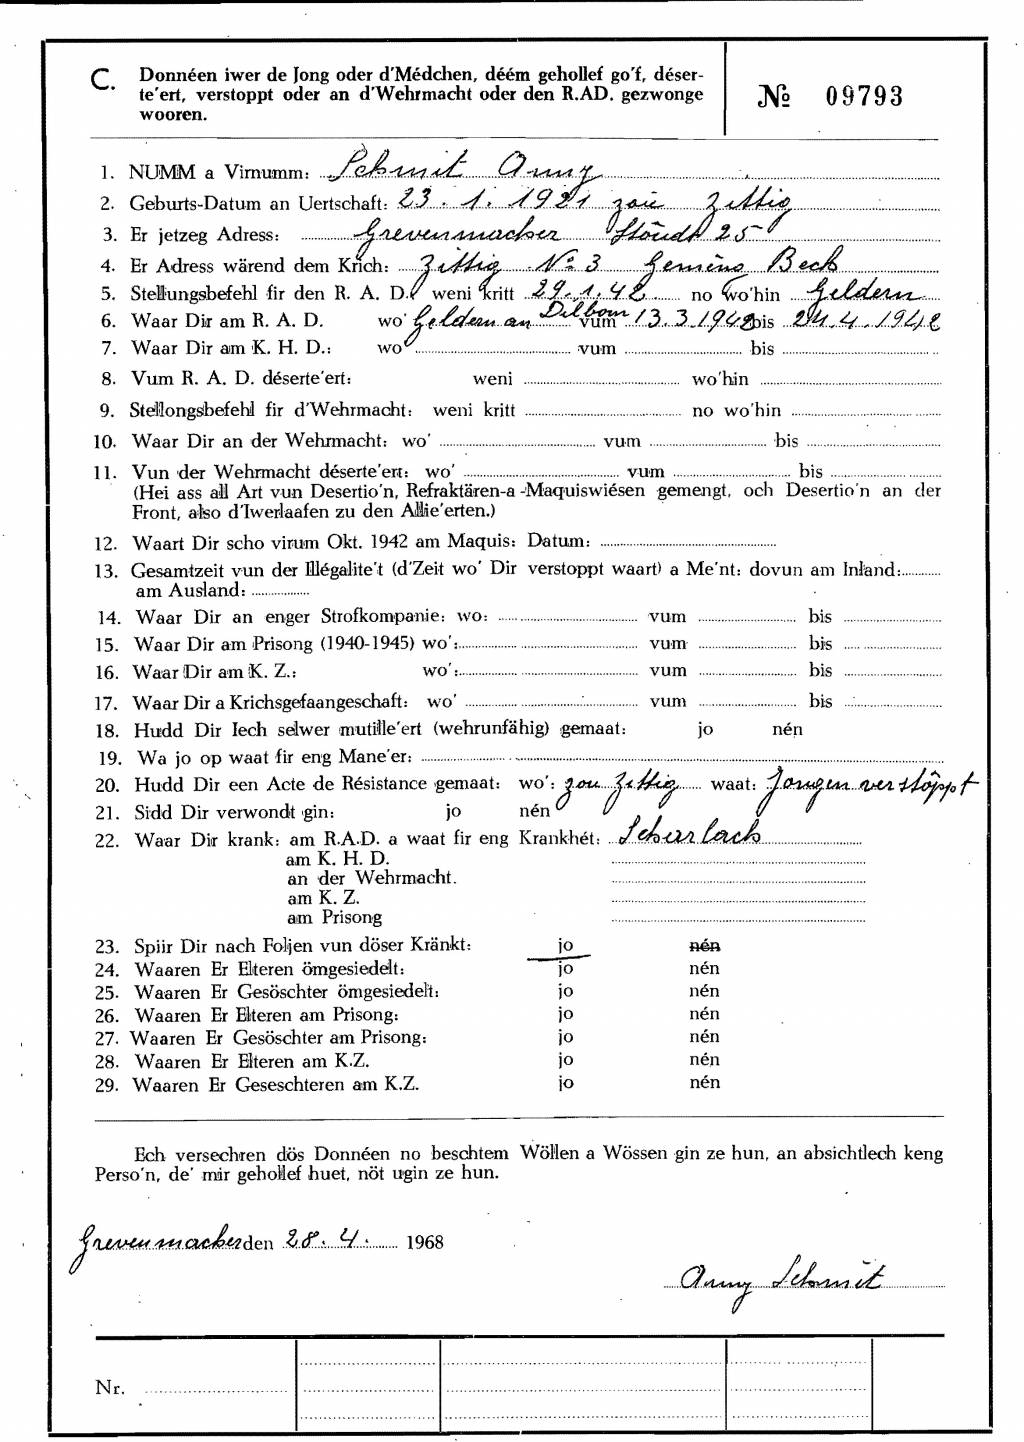 C. Donnéen iwer de Jong oder d'Médchen, déém gehollef go'f, déser-
te'ert, verstoppt oder an d'Wehrmacht oder den R.AD. gezwonge
wooren.
№ 09793
1. NUMM a Virnumm: Schmit Anny
2. Geburts-Datum an Uertschaft: 23. 1. 1921 zou Zittig
3. Er jetzeg Adress: Grevenmacher Stöudt 25
4. Er Adress wärend dem Krich: Zittig No 3 Gemeng Bech
5. Stellungsbefehl fir den R. A. D. weni kritt 29.1.42 no wo'hin Geldern
6. Waar Dir am R. A. D. wo' Geldern an Dilborn vum 13.3.1942 bis 24.4.1942
7. Waar Dir am K. H. D.: wo' vum bis
8. Vum R. A. D. déserte'ert: weni wo'hin
9. Stellongsbefehl fir d'Wehrmacht: weni kritt no wo'hin
10. Waar Dir an der Wehrmacht: wo' vum bis
11. Vun der Wehrmacht déserte'ert: wo' vum bis
(Hei ass all Art vun Desertio'n, Refraktären-a-Maquiswiésen gemengt, och Desertio'n an der
Front, also d'Iwerlaafen zu den Allie'erten.)
12. Waart Dir scho virum Okt. 1942 am Maquis: Datum:
13. Gesamtzeit vun der Illégalite't (d'Zeit wo' Dir verstoppt waart) a Me'nt: dovun am Inland:
am Ausland:
14. Waar Dir an enger Strofkompanie: wo: vum bis
15. Waar Dir am Prisong (1940-1945) wo': vum bis
16. Waar Dir am K. Z.: wo': vum bis
17. Waar Dir a Krichsgefaangeschaft: wo' vum bis
18. Hudd Dir Iech selwer mutille'ert (wehrunfähig) gemaat: jo nén
19. Wa jo op waat fir eng Mane'er:
20. Hudd Dir een Acte de Résistance gemaat: wo': zou Zittig waat: Jongen verstöppt
21. Sidd Dir verwondt gin: jo nén
22. Waar Dir krank: am R.A.D. a waat fir eng Krankhét: Scharlach
am K. H. D.
an der Wehrmacht.
am K. Z.
am Prisong
23. Spiir Dir nach Foljen vun döser Kränkt: jo nén
24. Waaren Er Elteren ömgesiedelt: jo nén
25. Waaren Er Gesöschter ömgesiedelt: jo nén
26. Waaren Er Elteren am Prisong: jo nén
27. Waaren Er Gesöschter am Prisong: jo nén
28. Waaren Er Elteren am K.Z. jo nén
29. Waaren Er Geseschteren am K.Z. jo nén
Ech versechren dös Donnéen no beschtem Wöllen a Wössen gin ze hun, an absichtlech keng
Perso'n, de' mir gehollef huet, nöt ugin ze hun.
Grevenmacher den 28. 4. 1968
Anny Schmit
Nr.